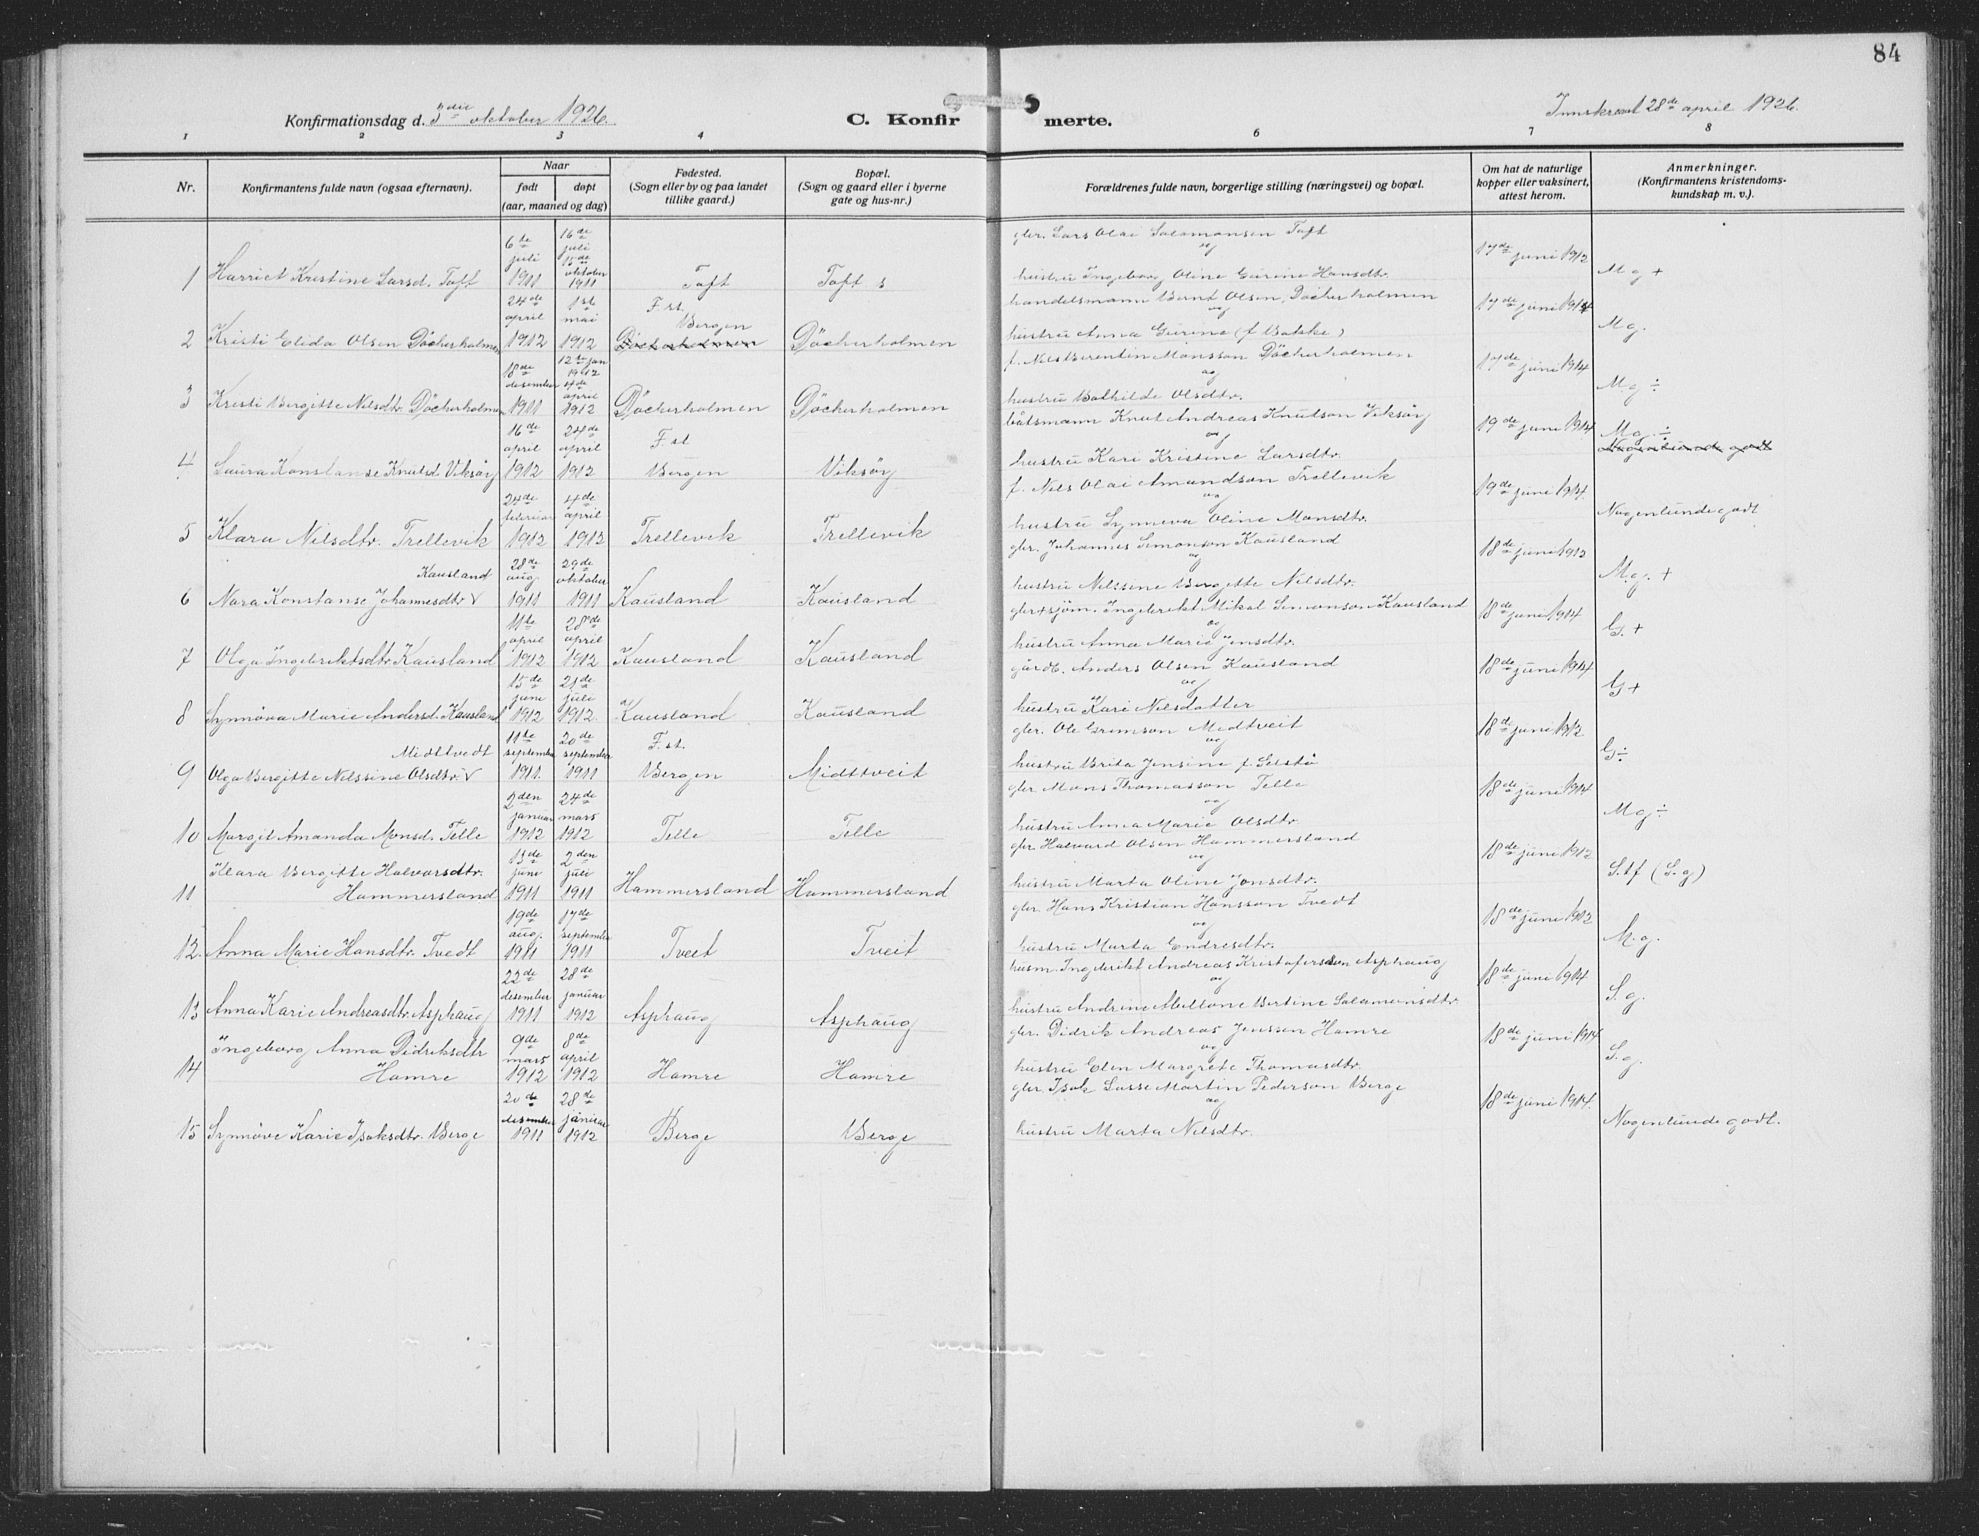 84
Konfirmationsdag d. 3die oktober 1926.
C. Konfirmerte.
Innskrevet 28de april 1926.
1 2 3 4 6 7 8
Nr.
Konfirmantens fulde navn (ogsaa efternavn).
Naar
født døpt
(aar, maaned og dag)
Fødested.
(Sogn eller by og paa landet
tillike gaard.)
Bopæl.
(Sogn og gaard eller i byerne
gate og hus-nr.)
Forældrenes fulde navn, borgerlige stilling (næringsvei) og bopæl.
Om hat de naturlige
kopper eller vaksinert,
attest herom.
Anmerkninger.
(Konfirmantens kristendoms-
kundskap m. v.).
1 Harriet Kristine Larsd. Toft
6te juli 1911
16de juli 15de oktober 1911
Toft
Toft s
gbr. Lars Olai Salamonsen Toft
og
hustru Ingeborg Oline Gurine Hansdtr.
17de juni 1912
M g +
2 Kristi Elida Olsen Döckerholmen
24de april 1912
1st mai 1912
F. st.
Bergen
Döckerholmen
Döckerholmen
handelsmann Bernt Olsen, Döckerholmen
og
hustru Anna Gurine (f. Batske)
17de juni 1914
M g.
3 Kristi Bergitte Nilsdtr. Döckerholmen
18de desember 1911
12te jan 1912 4de april 1912
Döckerholmen
Döckerholmen
f. Nils Berentin Månsson Döckerholmen
og
hustru Bothilde Olsdtr.
17de juni 1914
M g ÷
4 Laura Konstanse Knutsd. Viksöy
16de april 1912
24de april 1912
F. st
Bergen
Viksöy
båtsmann Knut Andreas Knutson Viksöy
og
hustru Kari Kristine Larsdtr.
19de juni 1914
M g. ÷
Nogenlunde godt
5 Klara Nilsdtr. Trellevik
24de februar 1912
4de april 1912
Trellevik
Trellevik
f. Nils Olai Amundson Trellevik
og
hustru Synneva Oline Monsdtr.
19de juni 1914.
Nogenlunde godt
6 Nora Konstanse Johannesdtr. v Kausland
28de aug. 1911
29de oktober 1911
Kausland
Kausland
gbr. Johannes Simonson Kausland
og
hustru Nilssine Bergitte Nilsdtr.
18de juni 1912
M.g. +
7 Olga Ingebriktsdtr. Kausland
11te april 1912
28de april 1912
Kausland
Kausland
gbr + sjöm. Ingebrikt Mikal Simonson Kausland
og
hustru Anna Marie Jensdtr.
18de juni 1914
G. +
8 Synnöva Marie Andersd. Kausland
15de juni 1912
21de juli 1912.
Kausland
Kausland
gårdb. Anders Olsen Kausland
og
hustru Kari Nilsdatter
18de juni 1914
G +
9 Olga Bergitte Nilssine Olsdtr. v Midttvedt
11te september 1911.
20de september 1911
F. st.
Bergen
Midttveit
gbr. Ole Grimson Midtveit
og
hustru Brita Jensine f. Selstö
18de juni 1912
G ÷
10 Margit Amanda Monsd. Telle
2den januar 1912
24de mars 1912
Telle
Telle
gbr Mons Thomasson Telle
og
hustru Anna Marie Olsdtr.
18de juni 1914
M g ÷
11 Klara Bergitte Halvorsdtr.
Hammersland
13de juni 1911
2den juli 1911
Hammersland
Hammersland
gbr Halvard Olsen Hammersland
og
hustru Marta Oline Jonsdtr.
18de juni 1912
S.tf (S.g)
12. Anna Marie Hansdtr. Tvedt
19de aug. 1911
17de september 1911
Tveit
Tveit
gbr. Hans Kristian Hansson Tvedt
og
hustru Marta Endresdtr.
18de juni 1912
M.g.
13 Anna Karie Andreasdtr. Asphaug
22de desember 1911
28de januar 1912
Asphaug
Asphaug
husm. Ingebrikt Andreas Kristoferson Asphaug
og
hustru Andrine Abellone Bertine Salamonsdtr.
18de juni 1914
S.g.
14 Ingeborg Anna Didriksdtr
Hamre
9de mars 1912
8de april 1912
Hamre
Hamre
gbr. Didrik Andreas Jensson Hamre
og
hustru Elen Margrete Thomasdtr.
18de juni 1914
S.g.
15 Synnöve Karie Isaksdtr. Berge
20de desember 1911
28de januar 1912
Berge
Berge
gbr Isak Lasse Martin Pederson Berge
og
hustru Marta Nilsdtr.
18de juni 1914.
Nogenlunde godt.